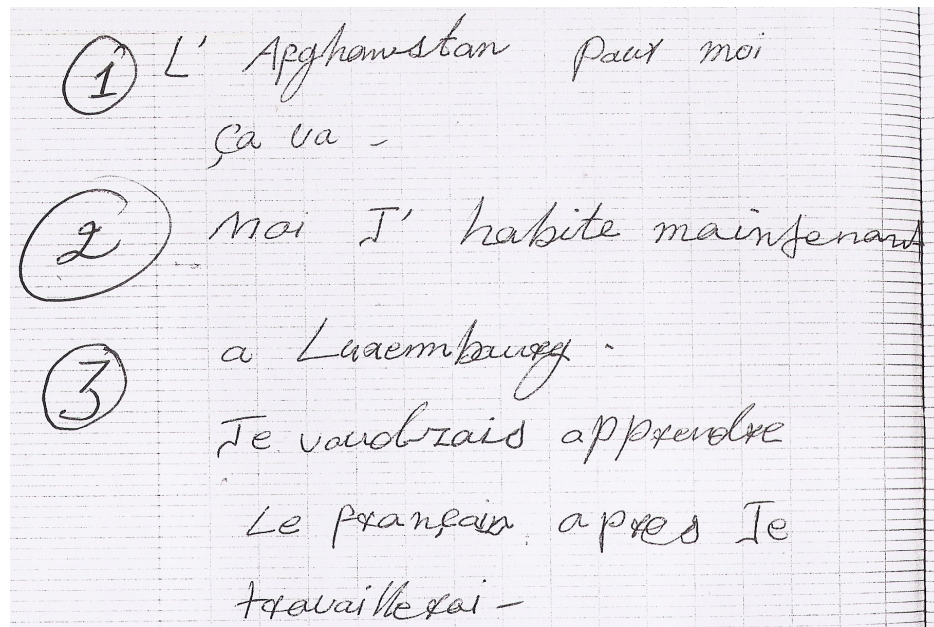 1 L' Afghanistan pour moi
ça va -
2 Moi J' habite maintenant
a Luxembourg .
3
Je voudrais apprendre
Le français apres Je
travaillerai -